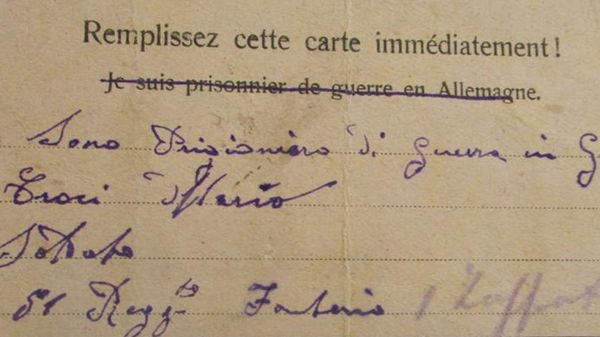 Remplissez cette carte immédiatement!
Je suis prisonnier de guerre en Allemagne.
Sono Prigioniero di Guerra in G
Croci Mario
Soldato
51 Regg.to Fanteria 1 Zappat